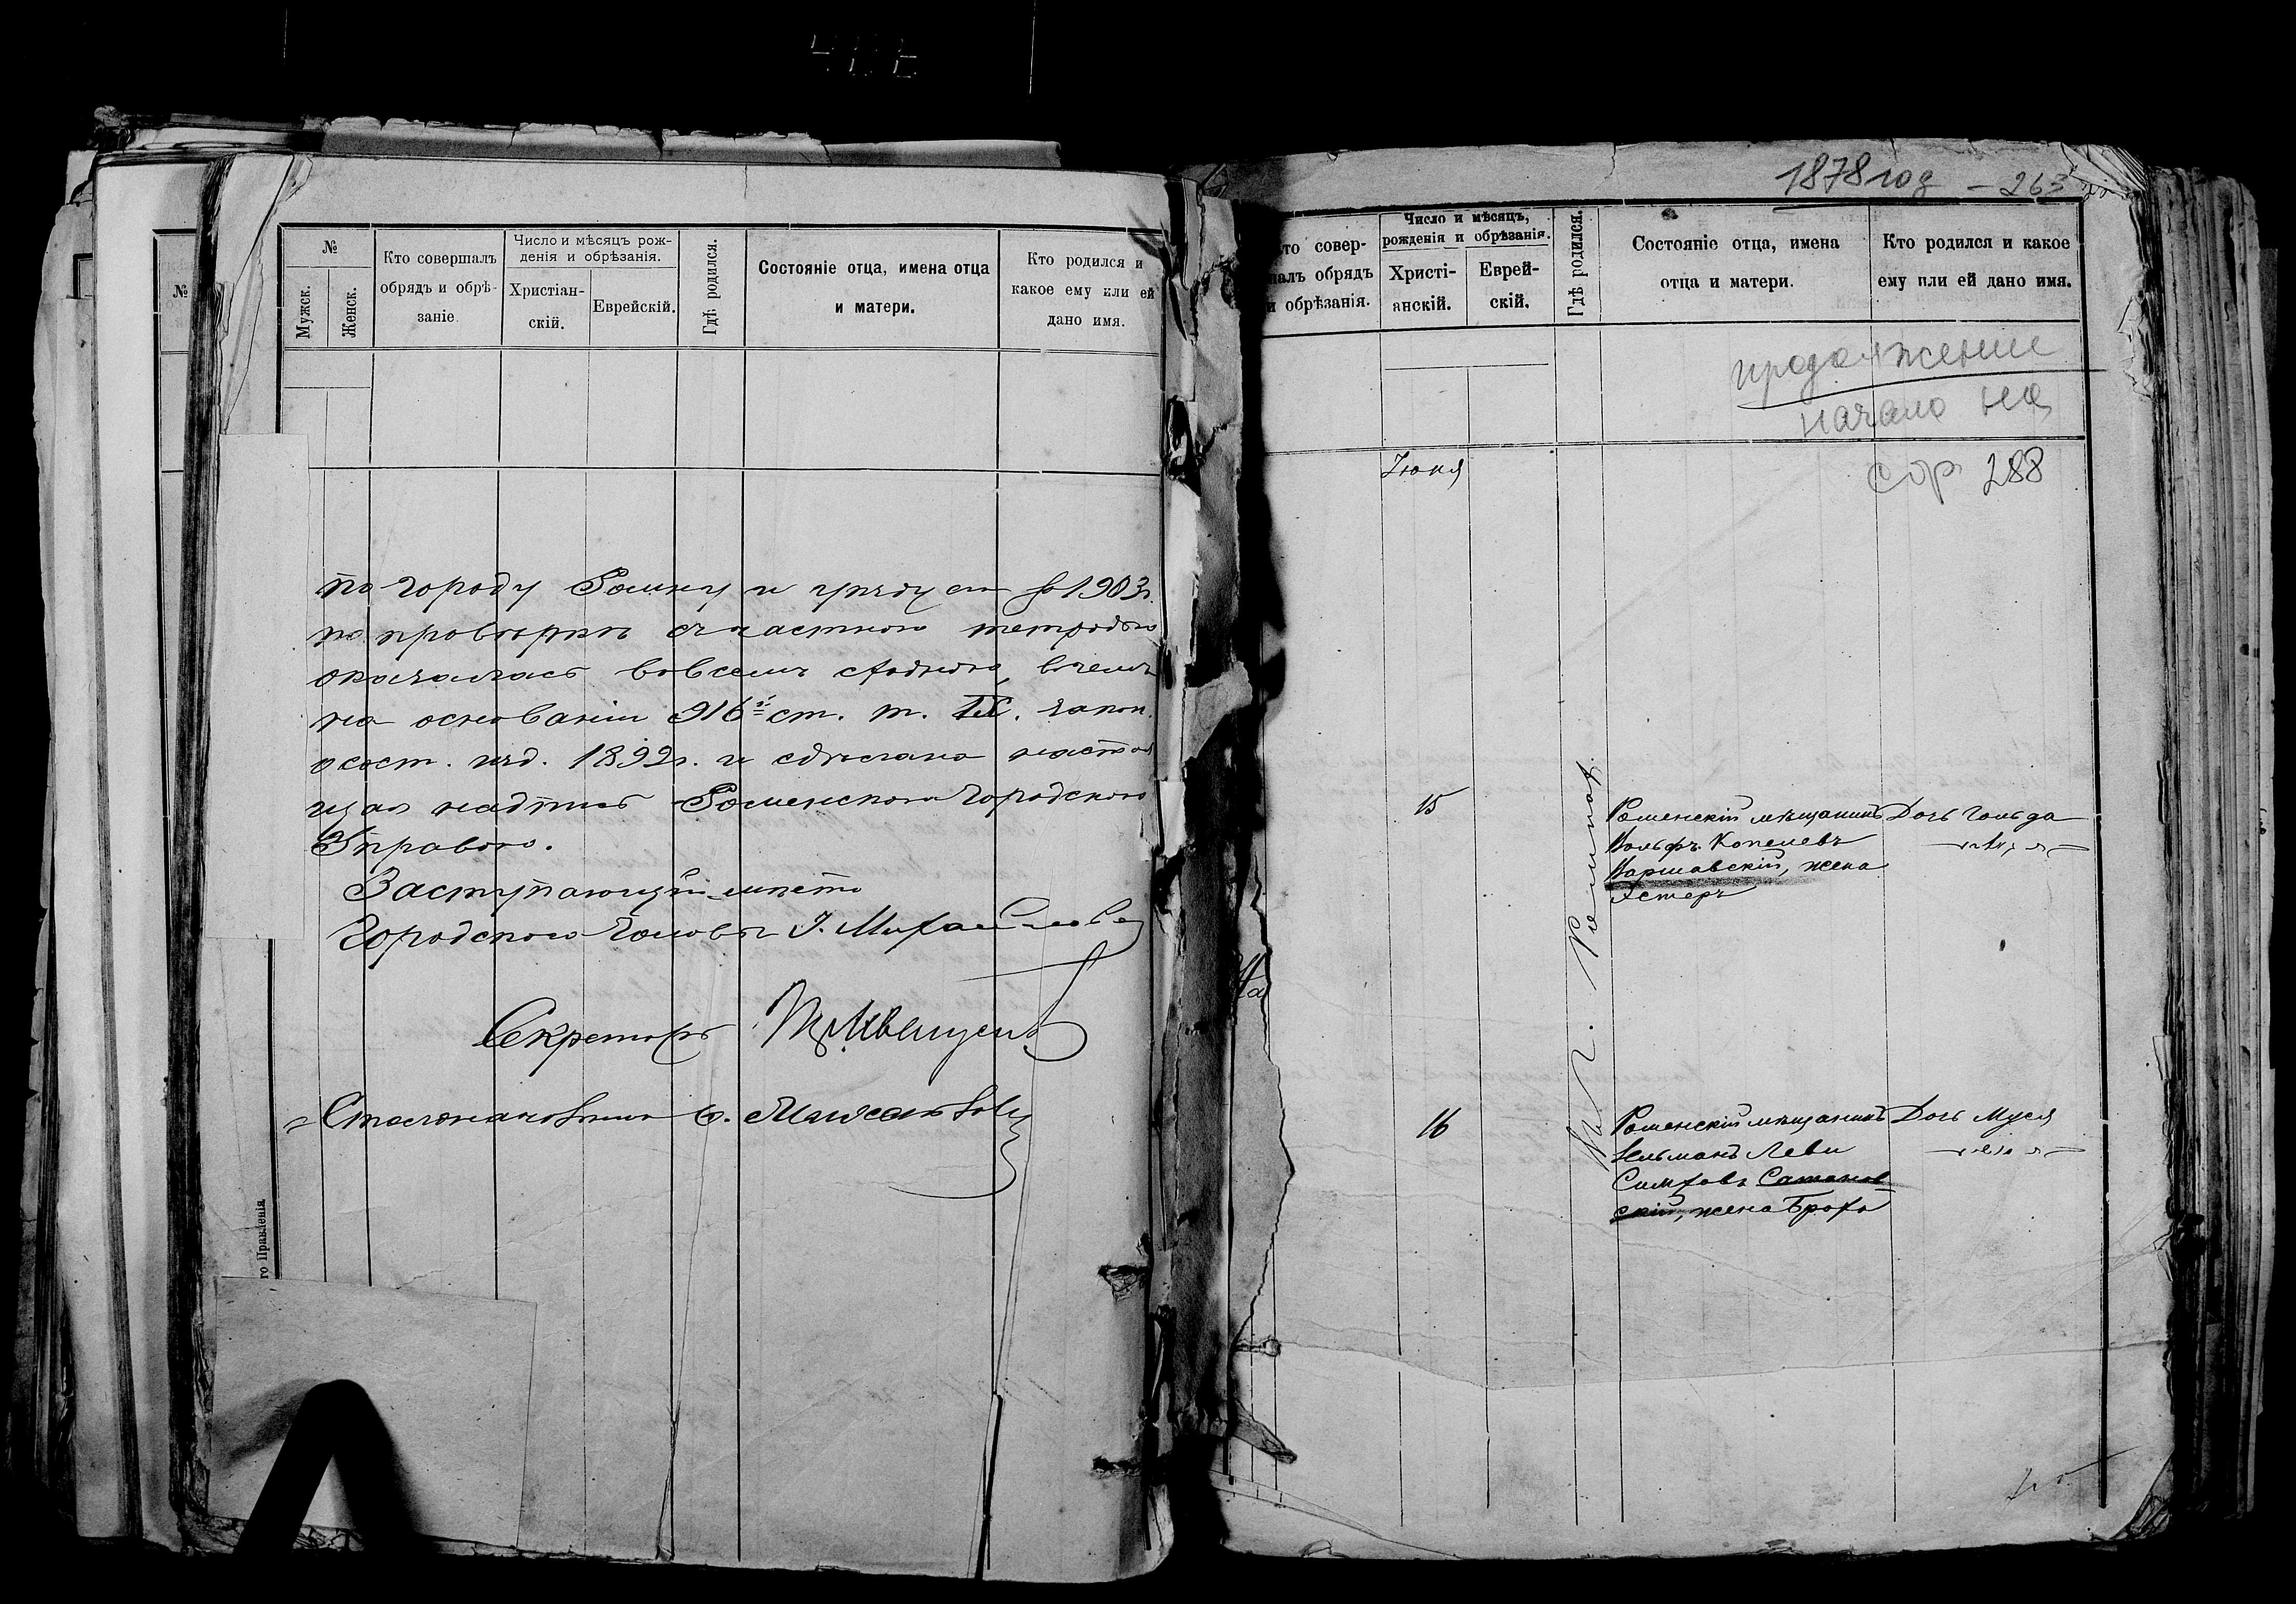 №
Мужск.
Женск.
Кто совершалъ
обрядъ и обрѣ-
заніе
Число и мѣсяцъ рож-
денія и обрѣзанія.
Христіан-
скій.
Еврейскій.
Гдѣ родился.
Состояніе отца, имена отца
и матери.
Кто родился и
какое ему или ей
дано имя.
по городу Ромну и уѣзду за 1903г.
по провѣркѣ съ частною тетрадью
оказалась вовсемъ сходною, вчемъ
на основаніи 916й ст. т. IX. закон.
осост. изд. 1899г. и сдѣлана настоя
щая надпись Роменскою Городскою
Управою.
Заступающій мѣсто
Городского Головы И. Михайлов
Секретарь
Столоначальникъ
го Правленія
№
1878 год - 263
то совер-
алъ обрядъ
и обрѣзанія.
Число и мѣсяцъ,
рожденія и обрѣзанія.
Христі-
анскій.
Еврей-
скій.
Гдѣ родился.
Состояніе отца, имена
отца и матери.
Кто родился и какое
ему или ей дано имя.
продолжение
начало на
стр 288
Іюня
15
Роменскій мѣщанинъ
Вольфъ Копелевъ
Варшавскій, жена
Эстеръ
Дочь Гольда
В г. Ромнах.
16
Роменскій мѣщанинъ
Зельманъ Леви
Симховъ Сатанов
скій, жена Броха
Дочь Муся